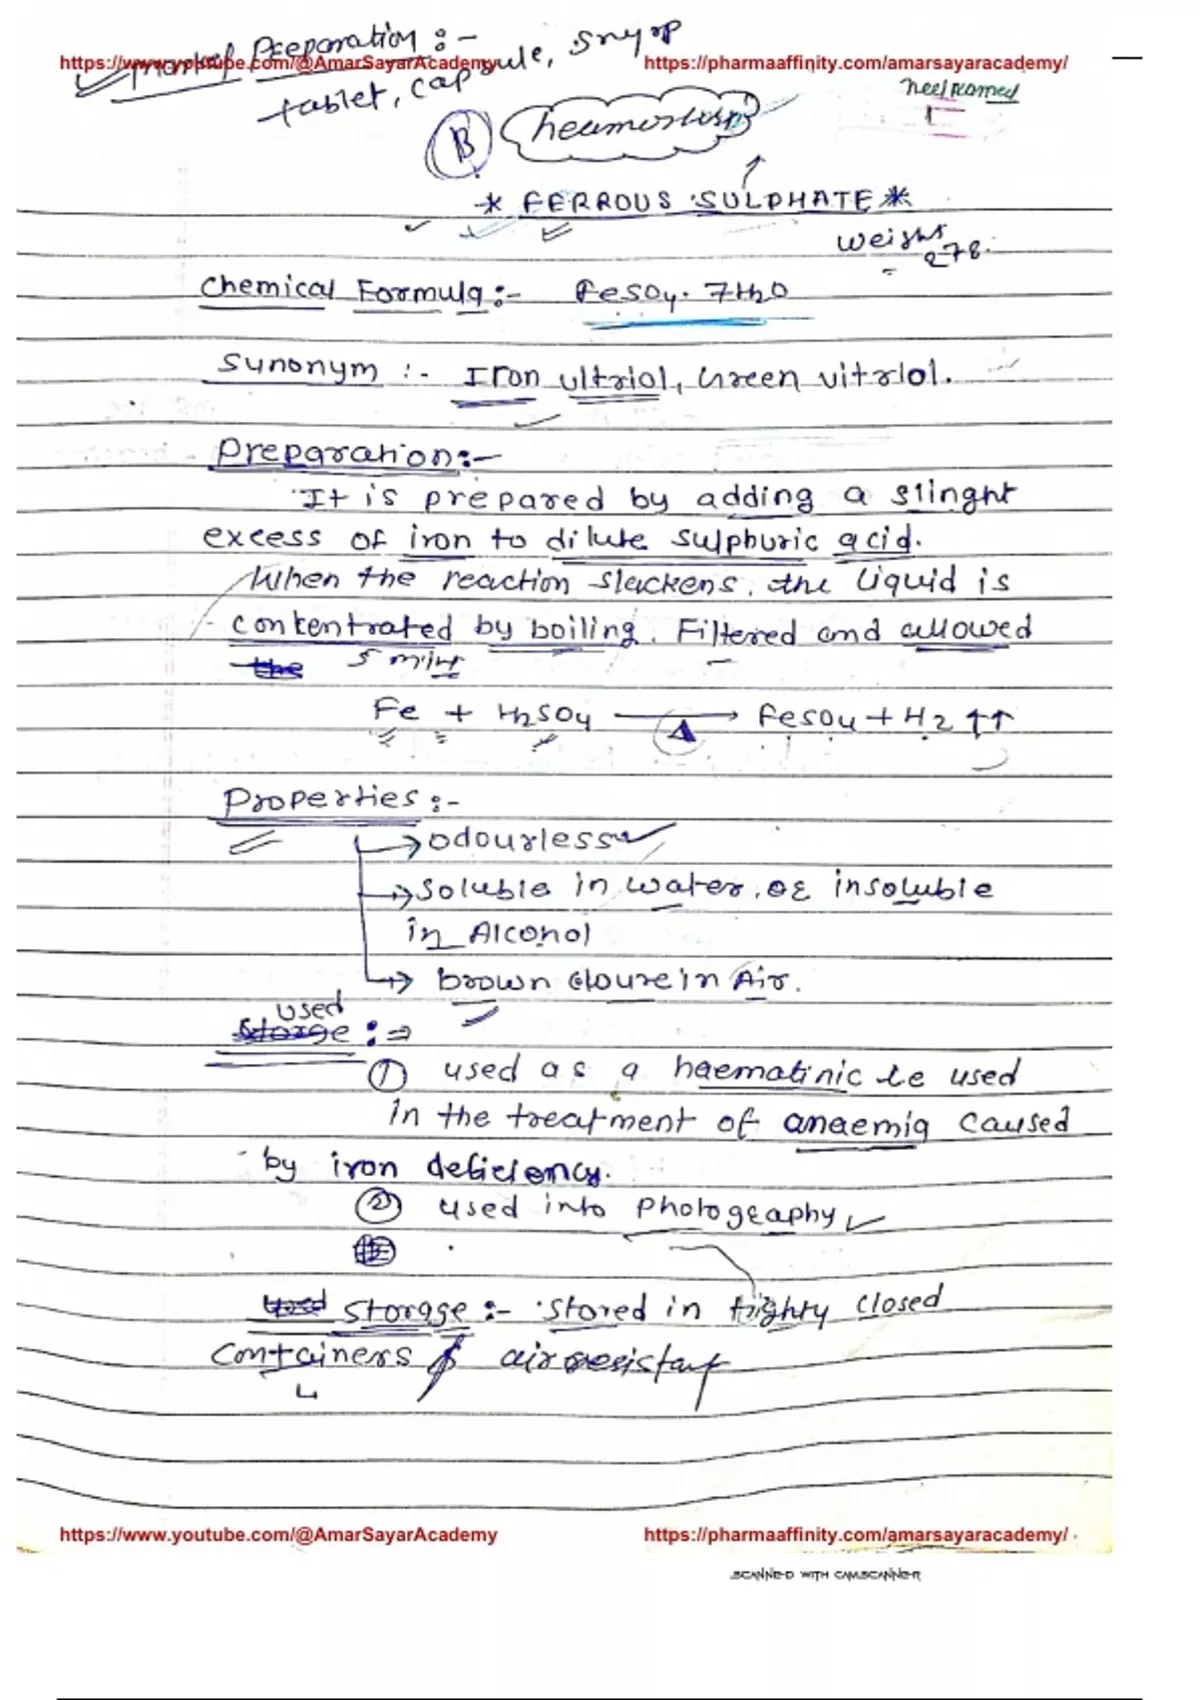 Market Preparation :-
https://www.youtube.com/@AmarSayarAcademy https://pharmaaffinity.com/amarsayaracademy/
tablet, capsule, snyrp
B
* FERROUS SULPHATE *
weight
278.
Chemical Formula :- FeSO4. 7H2O
Sunonym :- Iron vltriol, Green vitriol.
Preparation :-
It is prepared by adding a slinght
excess of iron to dilute sulphuric acid.
When the reaction slackens. the liquid is
contentrated by boiling. Filtered and allowed
the 5 mint
Fe + H2SO4 ⟶ FeSO4 + H2 ↑↑
Δ
Properties :-
→ odourless
→ soluble in water. or insoluble
in Alconol
→ brown cloure in Air.
used
Storge :⇒
① used as a haematinic ie used
in the treatment of anaemia caused
by iron deficiency.
② used into photography
Used Storage :- Stored in tighty closed
Containers airresistant
https://www.youtube.com/@AmarSayarAcademy https://pharmaaffinity.com/amarsayaracademy/
SCANNED WITH CAMSCANNER